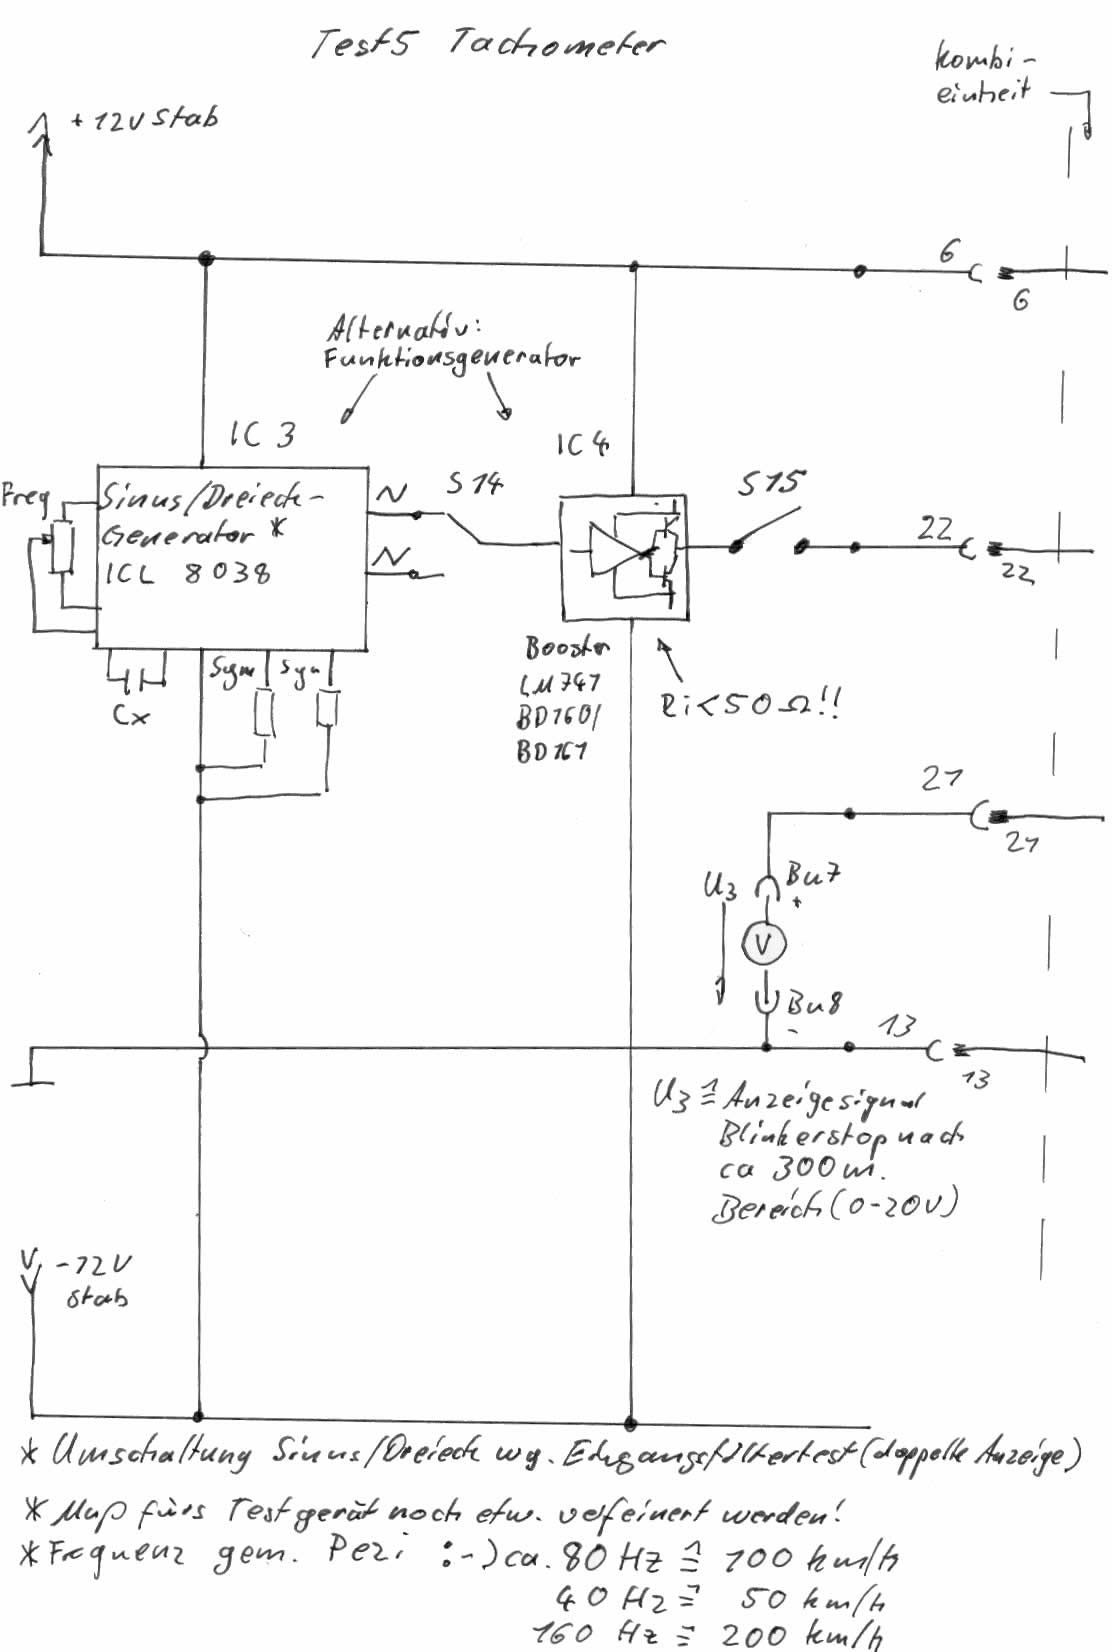 Test5 Tachometer
Kombi-
einheit
+12V Stab
6
6
Alternativ:
Funktionsgenerator
IC 3
IC 4
Freq
Sinus/Dreieck-
Generator *
ICL 8038
S14
S15
22
22
Sym
Sym
Cx
Booster
LM741
BD160/
BD161
Ri<50Ω!!
21
21
U3
Bu7
+
V
Bu8
-
13
13
U3 ≙ Anzeigesignal
Blinkerstop nach
ca 300m.
Bereich (0-20V)
-12V
stab
* Umschaltung Sinus/Dreieck wg. Eingangsfiltertest (doppelte Anzeige)
* Muß fürs Testgerät noch etw. verfeinert werden!
* Frequenz gem. Pezi :-) ca. 80 Hz ≙ 100 km/h
40 Hz ≙ 50 km/h
160 Hz ≙ 200 km/h